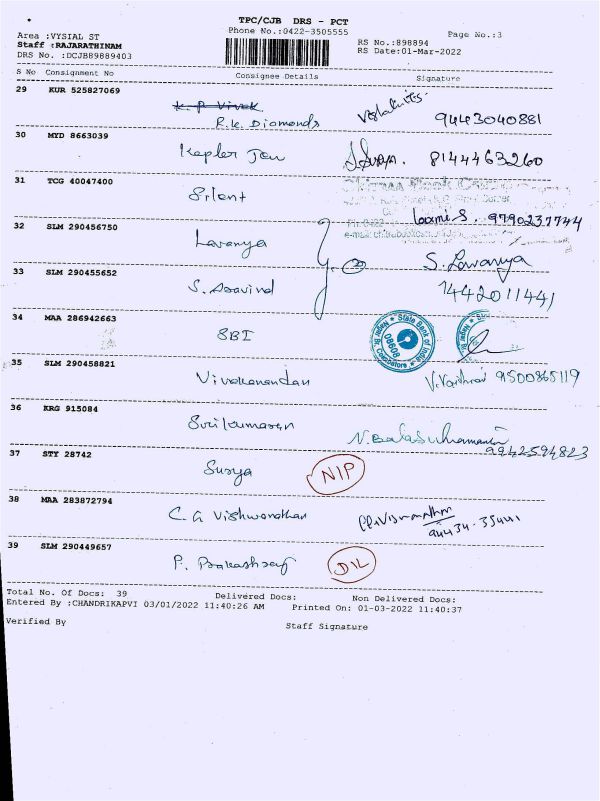 TPC/CJB DRS - PCT
Area :VYSIAL ST
Phone No.:0422-3505555
Page No.:3
Staff :RAJARATHINAM
RS No.:898894
DRS No. :DCJB89889403
RS Date:01-Mar-2022
S No Consignment No Consignee Details Signature
29 KUR 525827069
K. P Vivek
R.K. Diamonds 9443040881
30 MYD 8663039
Kepler Jen 8144463260
31 TCG 40047400
Silent
9790237744
32 SLM 290456750
Lavanya S. Lavanya
33 SLM 290455652
S. Aravind 1442011441
34 MAA 286942663
SBI State Bank of India 08608 Coimbatore
35 SLM 290458821
Vivekanandan 9500865119
36 KRG 915084
Srikumaran N. Balasubramanian
9942594823
37 STY 28742
Surya NIP
38 MAA 283872794
C. G Vishwanathan
39 SLM 290449657
P. Prakashraj DIL
Total No. Of Docs: 39 Delivered Docs: Non Delivered Docs:
Entered By :CHANDRIKAPVI 03/01/2022 11:40:26 AM Printed On: 01-03-2022 11:40:37
Verified By Staff Signature